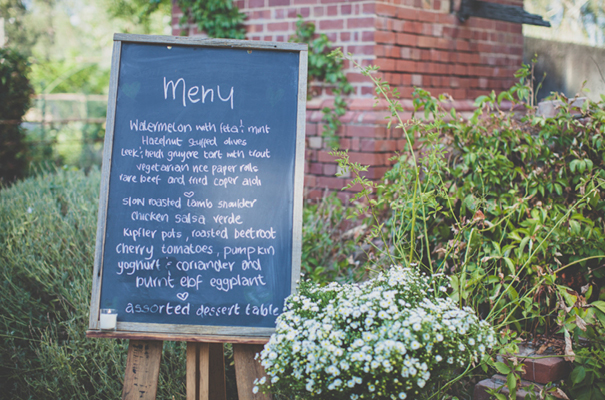 Menu
Watermelon with feta & mint
Hazelnut stuffed olives
Leek & gruyere tart with trout
vegetarian rice paper rolls
rare beef and fried caper aioli
slow roasted lamb shoulder
chicken salsa verde
Kipfler pots, roasted beetroot
cherry tomatoes, pumpkin
yoghurt & coriander and
burnt eggplant
assorted dessert table